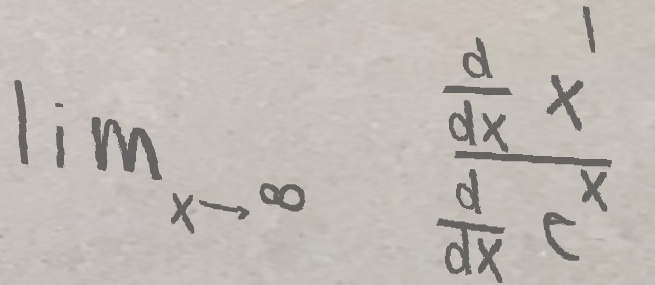 lim x→∞ (d/dx x^1)/(d/dx c^x)